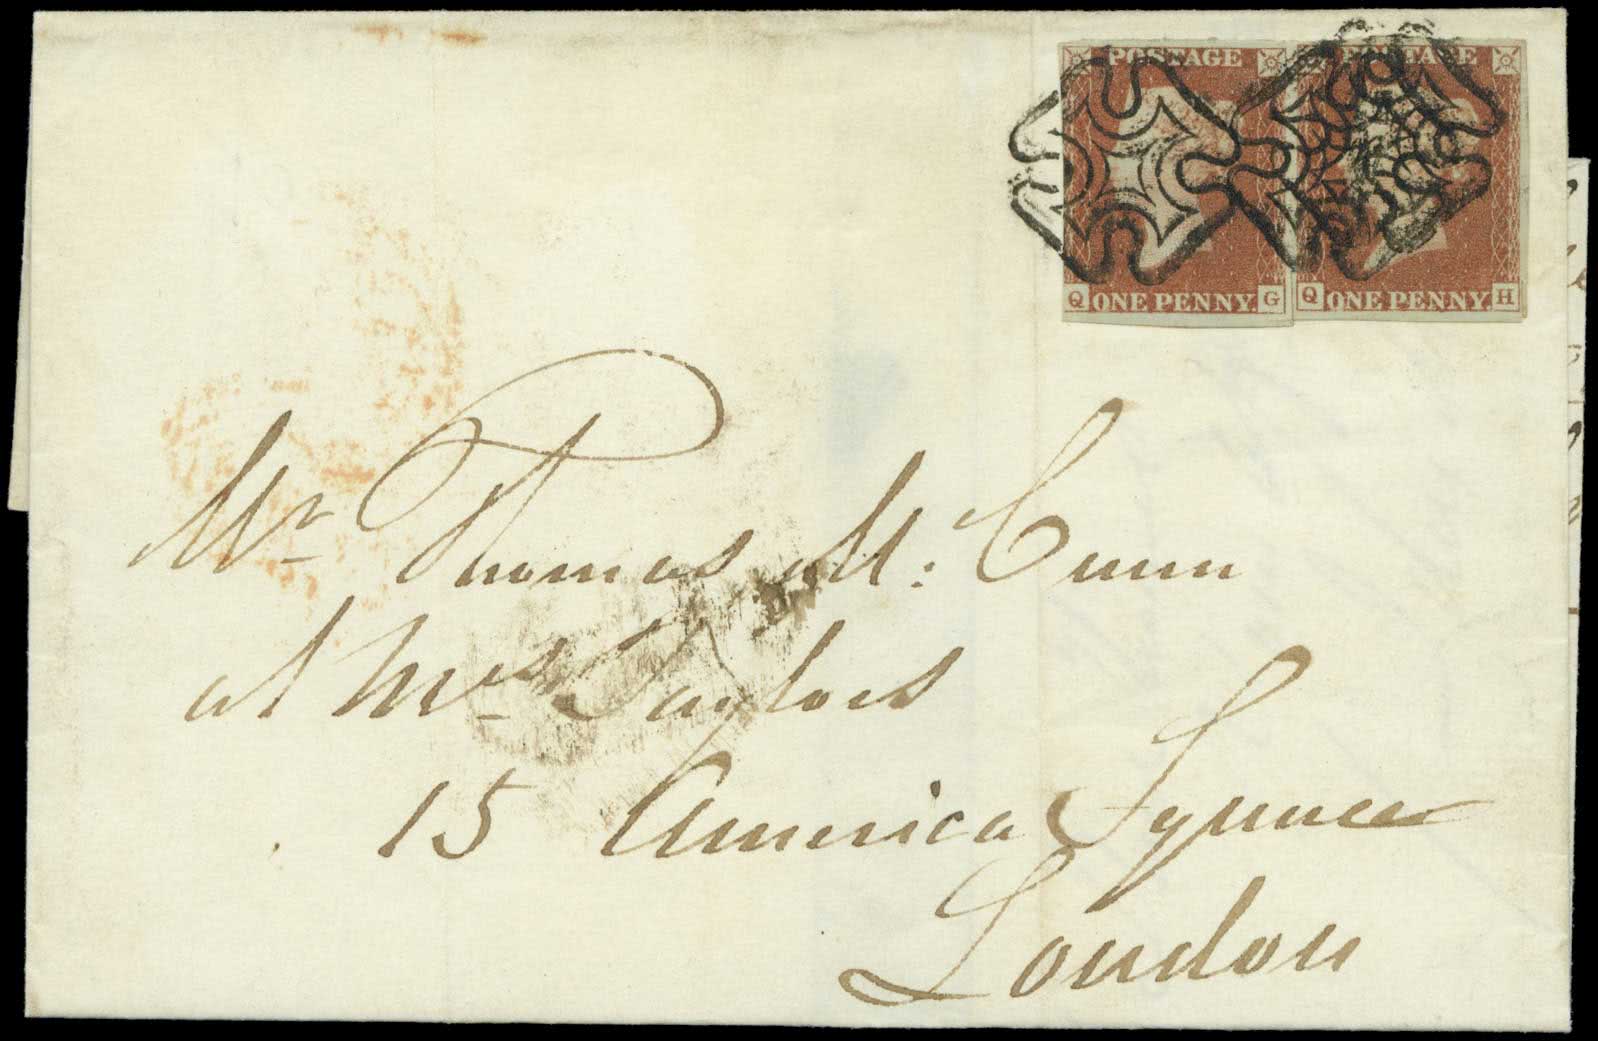 POSTAGE POSTAGE
Q ONE PENNY. G Q ONE PENNY. H
Mr Thomas M: Cunn
at Mrs Taylors
15 America Square
London